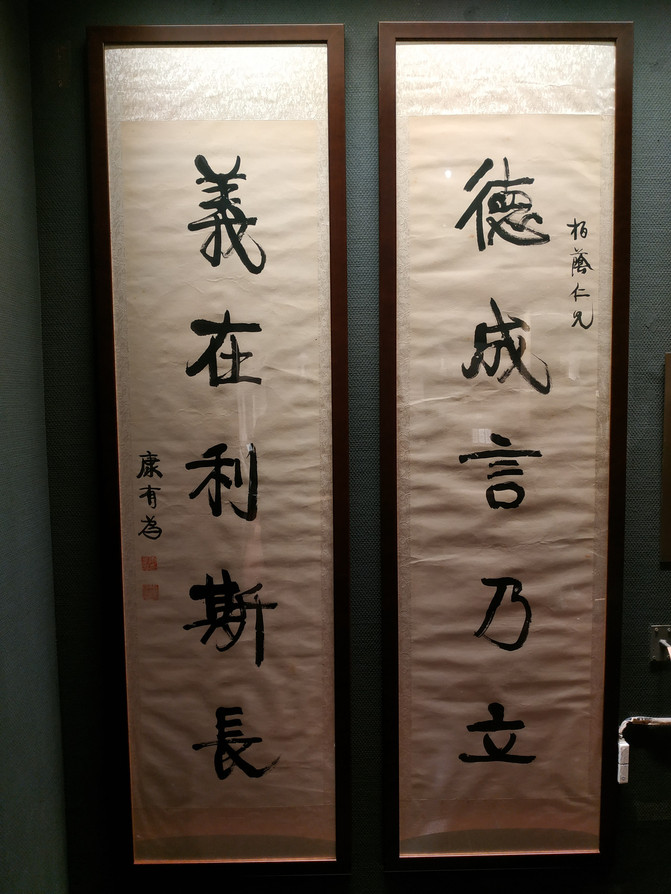 柏蔭仁兄
德成言乃立
義在利斯長
康有為